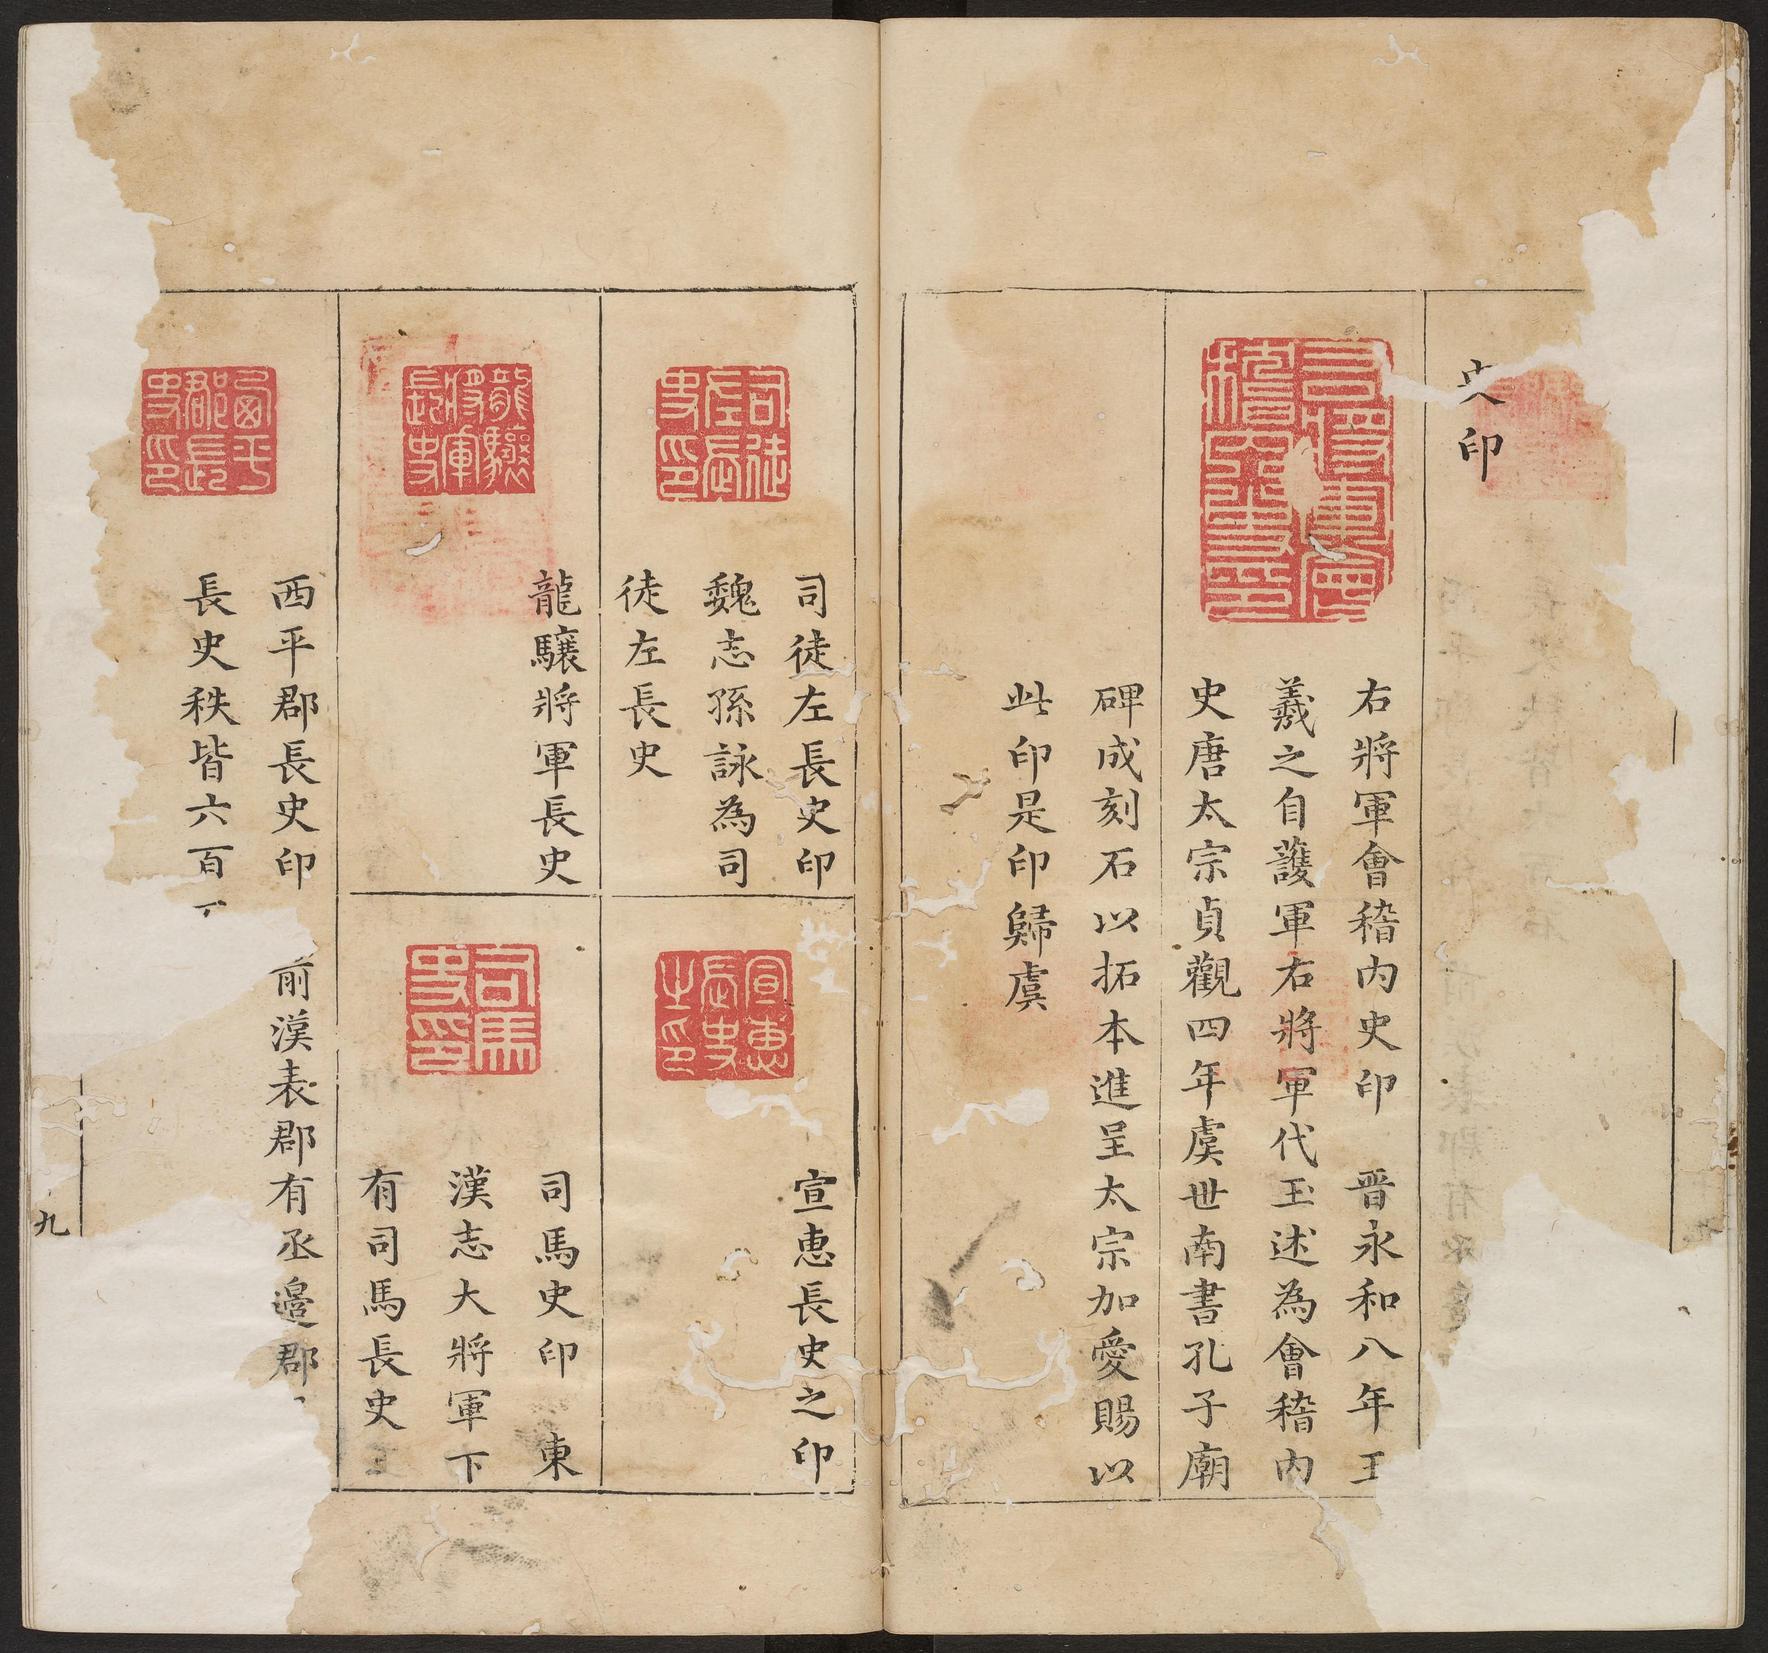 史印
右將軍會稽內史印 晉永和八年王
羲之自護軍右將軍代王述為會稽內
史唐太宗貞觀四年虞世南書孔子廟
碑成刻石以拓本進呈太宗加愛賜以
此印是印歸虞
司徒左長史印
司徒左長史印
魏志孫詠為司
徒左長史
宣惠長史之印
宣惠長史之印
龍驤將軍長史
龍驤將軍長史
司馬史印
司馬史印 東
漢志大將軍下
有司馬長史
西平郡長史印
西平郡長史印
前漢表郡有丞邊郡
長史秩皆六百
九